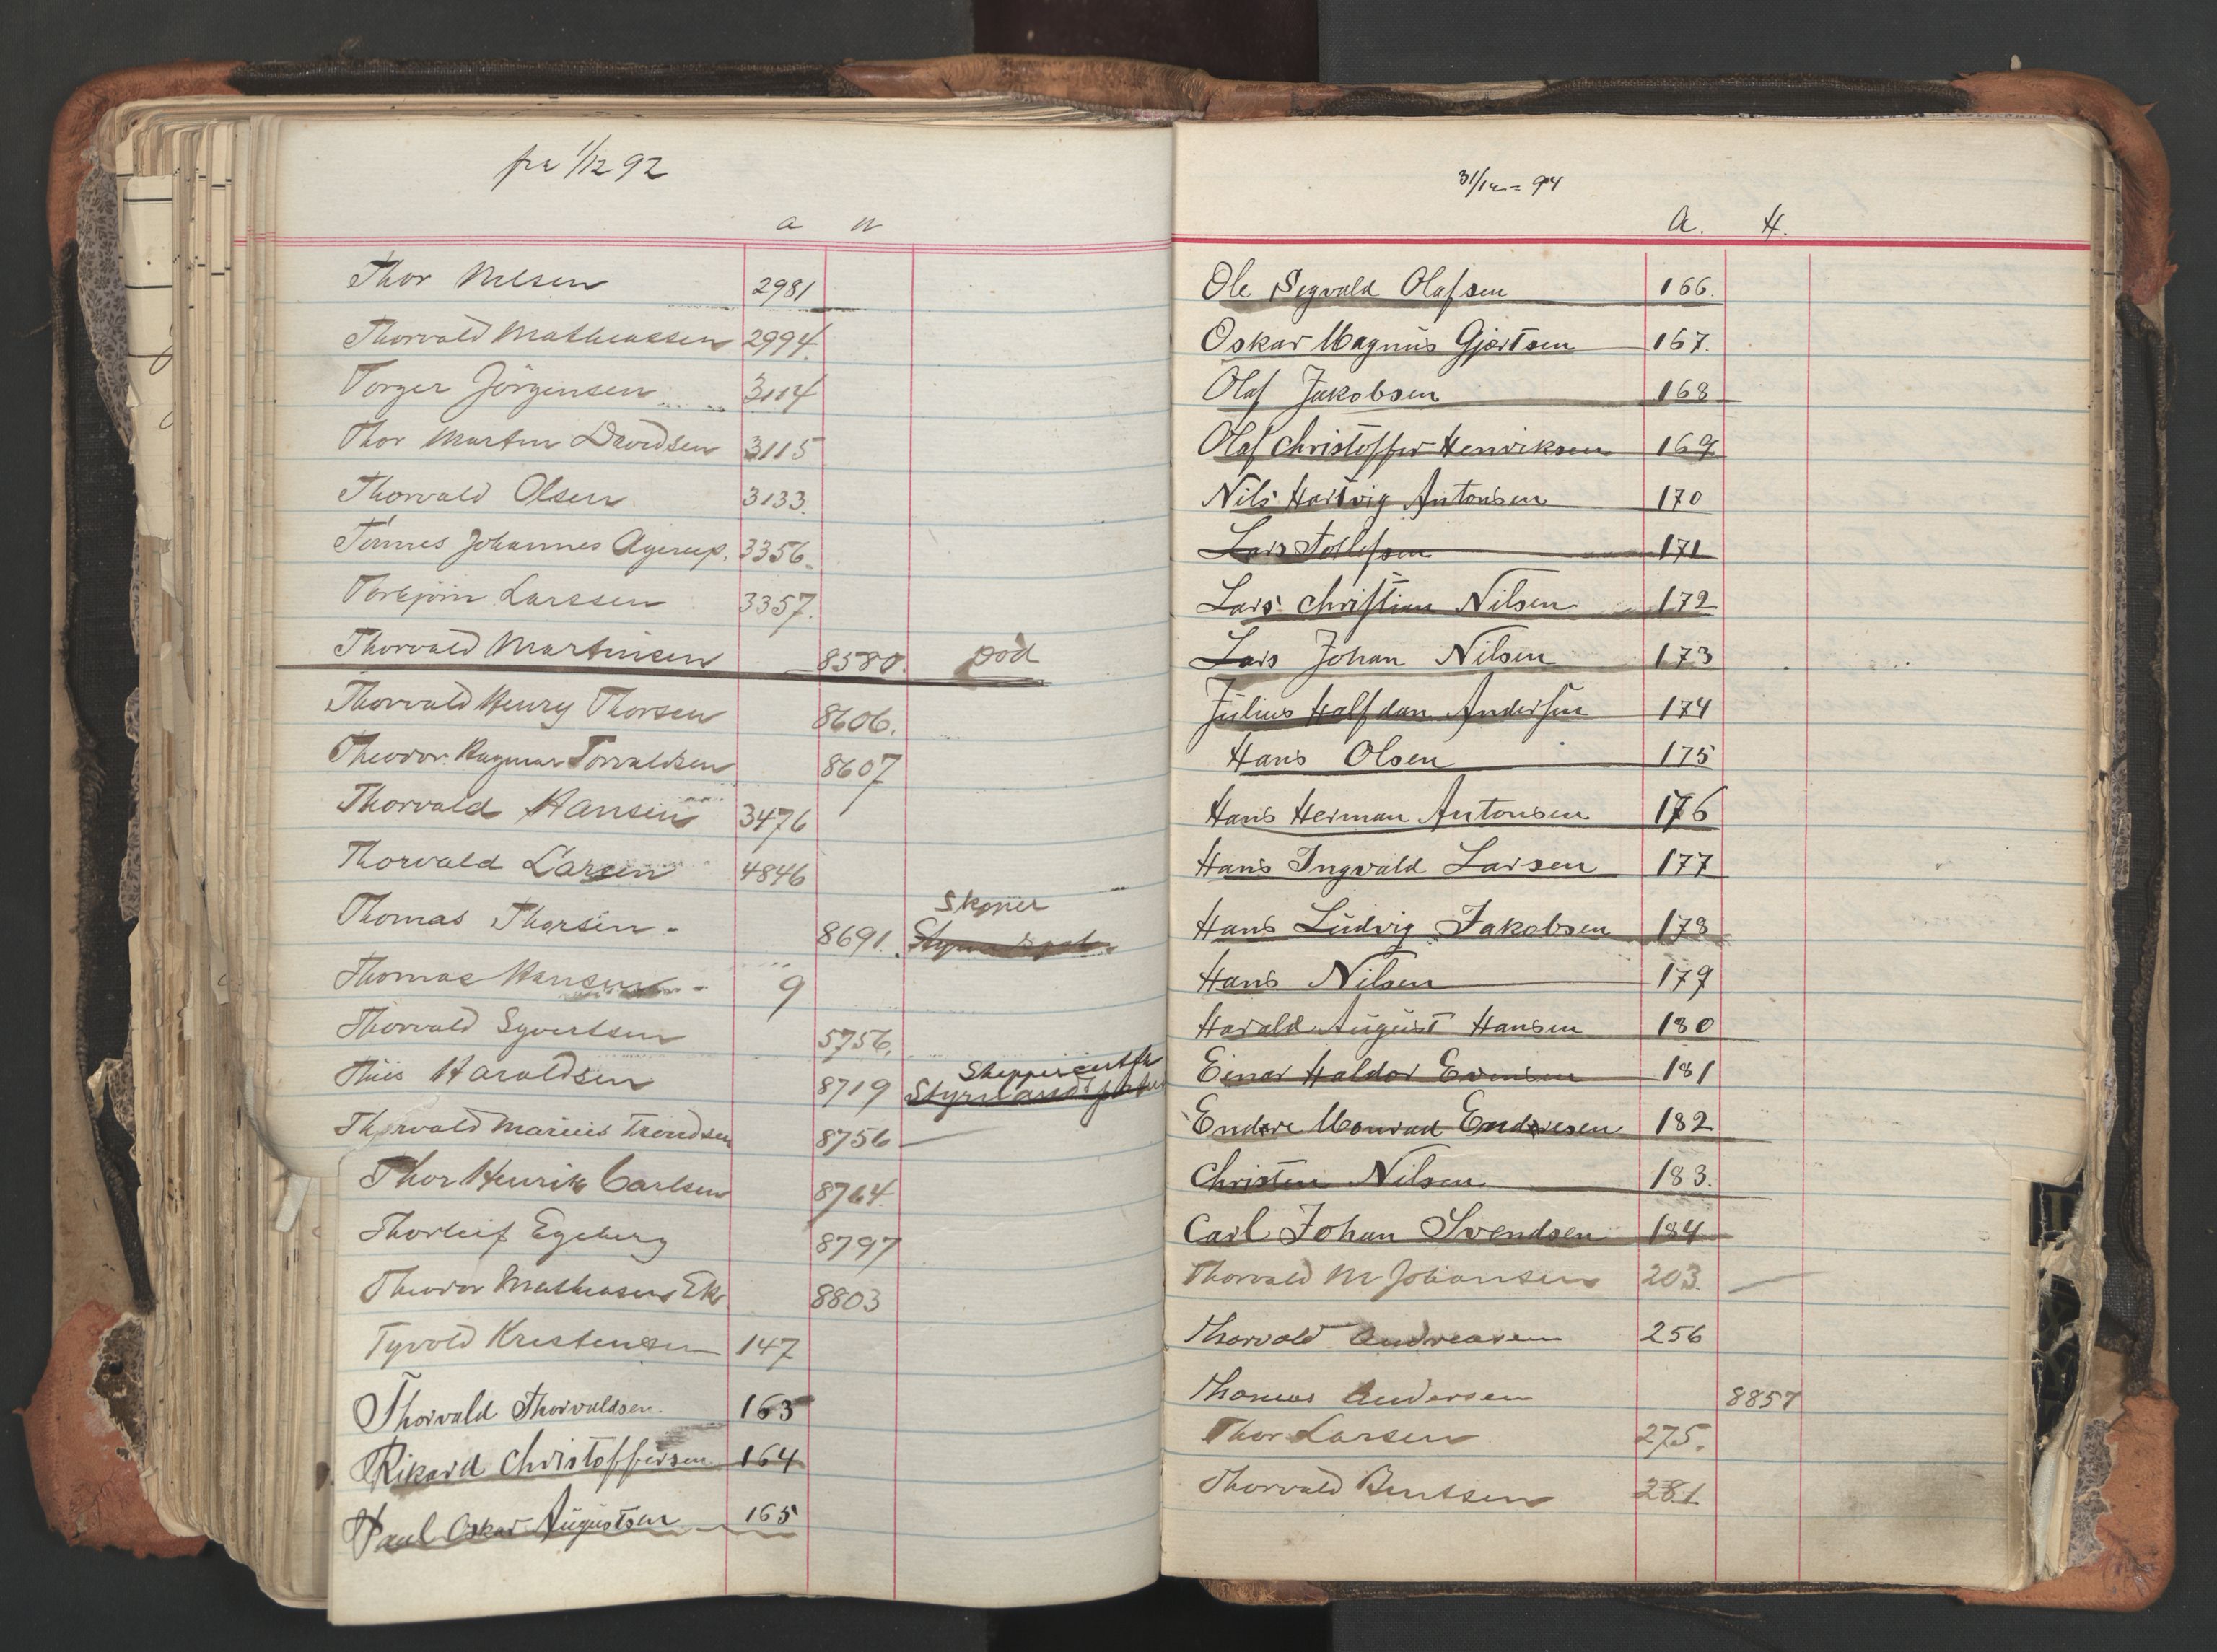 fra 1/12 92
a n
Thor Nilsen 2981
Thorvald Mathiassen 2994.
Torger Jörgensen 3114
Thor Martin Davidsen 3115
Thorvald Olsen 3133.
Tönnes Johannes Agerup. 3356.
Torbjörn Larssen 3357.
Thorvald Martinsen 8580. död
Thorvald Henry Thorsen 8606.
Theodor Ragnvar Torvaldsen 8607
Thorvald Hansen 3476
Thorvald Larsen 4846
Skipper
Thomas Thorsen. 8691.
Thomas Hansen 9
Thorvald Syvertsen 5756.
Thiis Haraldsen 8719
Thorvald Marius Trondsen 8756
Thor Henrik Carlsen 8764.
Thorleif Egeberg 8797
Theodor Mathiasen Ek 8803
Tyvold Kristensen 147
Thorvald Thorvaldsen. 163
Rikard Christoffersen 164
Paul Oskar Augustsen 165
31/12 = 94
A. H.
Ole Segvald Olafsen 166.
Oskar Magnus Gjertsen 167.
Olaf Jakobsen 168
Olaf Christoffer Henriksen 169
Nils Hartvig Antonsen 170
Lars Tollefsen 171
Lars Christian Nilsen 172
Lars Johan Nilsen 173
Julius Halfdan Andersen 174
Hans Olsen 175
Hans Herman Antonsen 176
Hans Ingvald Larsen 177
Hans Ludvig Jakobsen 178
Hans Nilsen 179
Harald August Hansen 180
Einar Haldor Evensen 181
Endre Monrad Endresen 182
Christen Nilsen 183.
Carl Johan Svendsen 184
Thorvald M Johansen 203.
Thorvald Andreasen 256
Thomas Andersen 8857
Thor Larsen 275.
Thorvald Bentsen 281